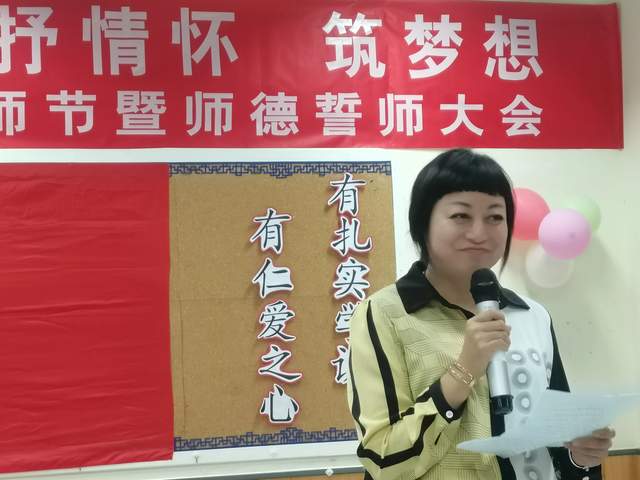 抒情怀 筑梦想
师节暨师德誓师大会
有扎实学识
有仁爱之心